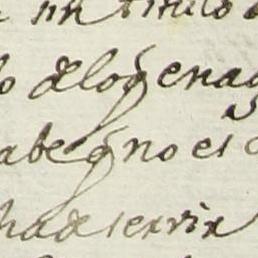 sin titulo
o de lo q̃ en a
abe q̃ no es
ha de servir